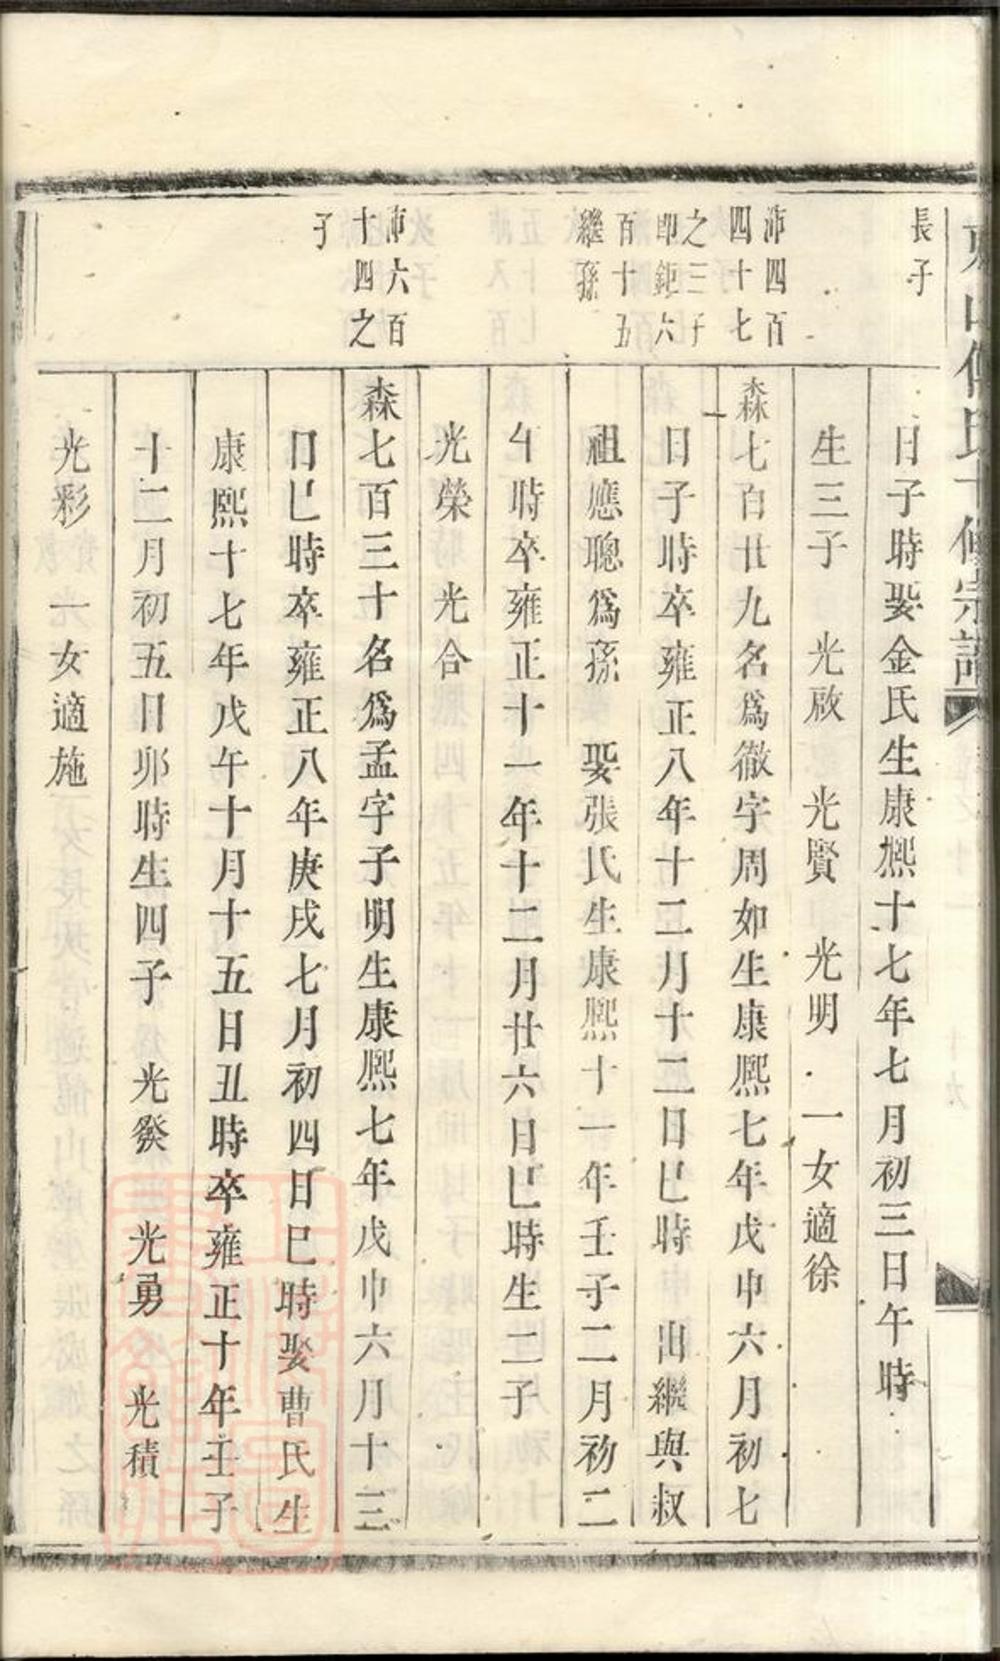 長子
日子時娶金氏生康熙十七年七月初三日午時
生三子 光啟 光賢 光明 一女適徐
沛四百
四十七
之三子
即鉅六
百十五
繼孫
森七百廿九名爲徹字周如生康熙七年戊申六月初七
日子時卒雍正八年十二月十二日巳時 出繼與叔
祖應聰爲孫 娶張氏生康熙十一年壬子二月初二
午時卒雍正十一年十二月廿六日巳時生二子
光榮 光合
沛六百
十四之
子
森七百三十名爲孟字子明生康熙七年戊申六月十三
日巳時卒雍正八年庚戌七月初四日巳時娶曹氏生
康熙十七年戊午十月十五日丑時卒雍正十年壬子
十二月初五日卯時生四子 光發 光勇 光積
光彩 一女適施